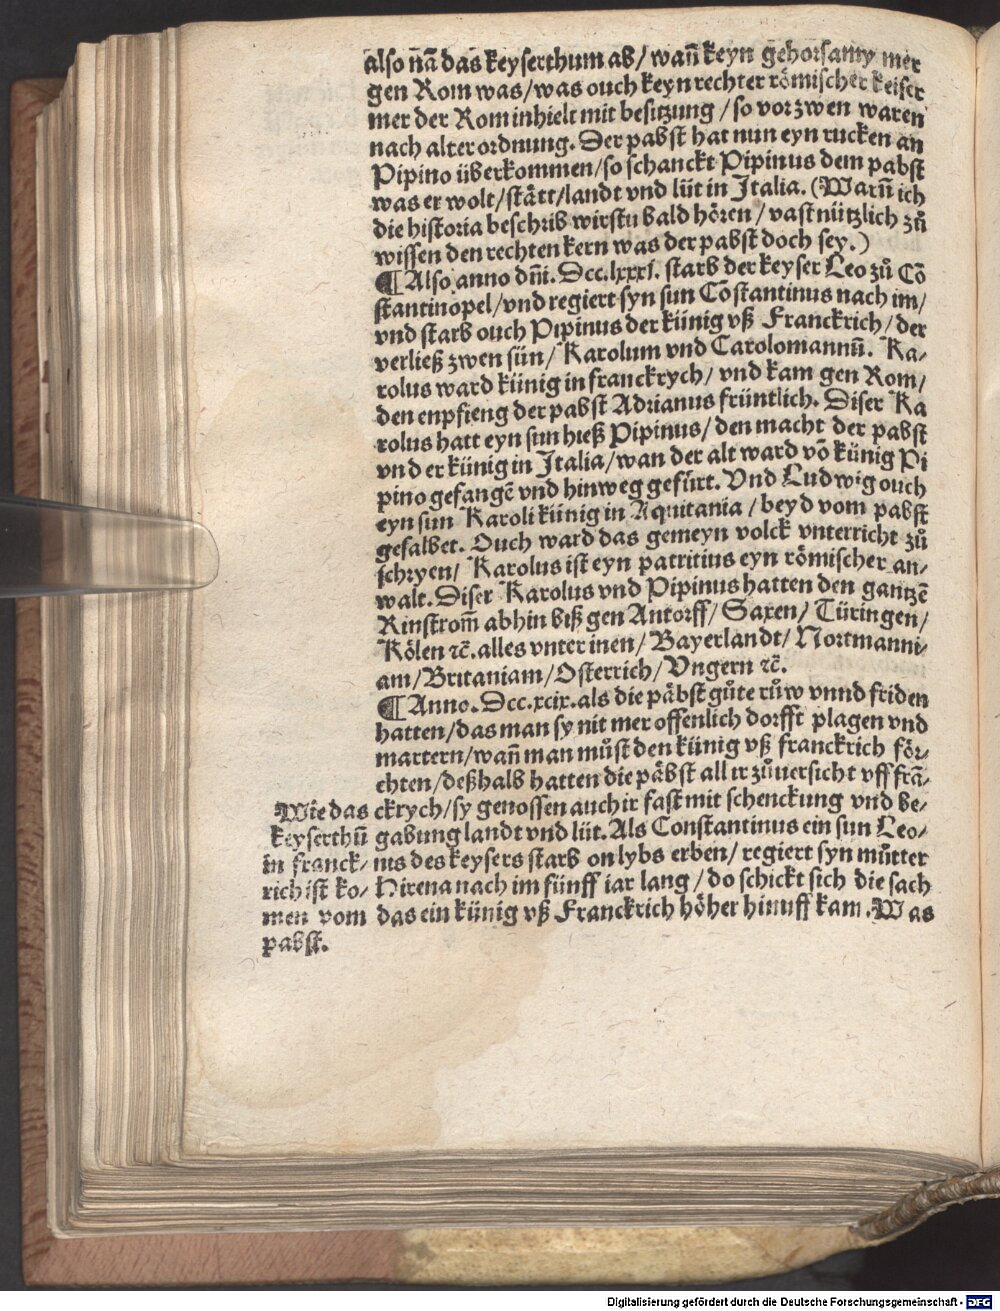 also nā das keyserthum ab/wañ keyn gehorsamy mer
gen Rom was/was ouch keyn rechter römischer keiser
mer der Rom inhielt mit besitzung/so vor zwen waren
nach alter ordnung. Der pabst hat nun eyn rucken an
Pipino überkommen/so schanckt Pipinus dem pabst
was er wolt/stätt/landt vnd lüt in Italia. (Wañ ich
die historia beschrib wirstu bald hören/vast nützlich zů
wissen den rechten kern was der pabst doch sey.)
¶ Also anno dñi. Dcc.lxxxi. starb der keyser Leo zů Cō
stantinopel/vnd regiert syn sun Cōstantinus nach im/
vnd starb ouch Pipinus der künig vß Franckrich/der
verließ zwen sün/Karolum vnd Carolomannū. Ka-
rolus ward künig in franckrych/vnd kam gen Rom/
den enpfieng der pabst Adrianus früntlich. Diser Ka
rolus hatt eyn sun hieß Pipinus/den macht der pabst
vnd er künig in Italia/wan der alt ward vō künig Pi
pino gefangē vnd hinweg gefürt. Vnd Ludwig ouch
eyn sun Karoli künig in Aquitania/beyd vom pabst
gesalbet. Ouch ward das gemeyn volck vnterricht zů
schryen/Karolus ist eyn patritius eyn römischer an-
walt. Diser Karolus vnd Pipinus hatten den gantzē
Rinstrom̄ abhin biß gen Antorff/Saxen/Türingen/
Kölen ⁊c̄. alles vnter inen/Bayerlandt/Nortmanni-
am/Britaniam/Osterrich/Vngern ⁊c̄.
¶ Anno. Dcc.xcix. als die päbst gůte růw vnnd friden
hatten/das man sy nit mer offenlich dorfft plagen vnd
martern/wañ man můst den künig vß franckrich för-
chten/deßhalb hatten die päbst all ir zůuersicht vff frā-
ckrych/sy genossen auch ir fast mit schenckung vnd be-
gabung landt vnd lüt. Als Constantinus ein sun Leo-
nis des keysers starb on lybs erben/regiert syn můtter
Hirena nach im fünff iar lang/do schickt sich die sach
das ein künig vß Franckrich höher hinuff kam. Was
Wie das
keyserthū
in franck-
rich ist ko-
men vom
pabst.
Digitalisierung gefördert durch die Deutsche Forschungsgemeinschaft - DFG